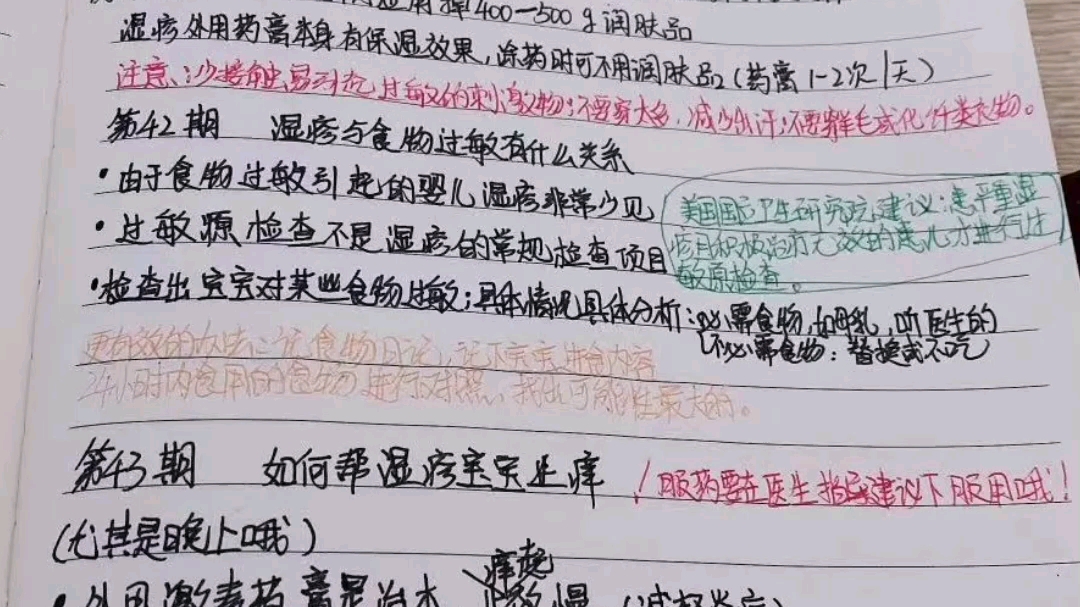 400-500g润肤品
湿疹外用药膏本身有保湿效果,涂药时可不用润肤品(药膏1-2次/天)
注意:少接触易引起过敏的刺激物;不要穿太多,减少出汗;不要穿羊毛或化纤类衣物。
第42期 湿疹与食物过敏有什么关系
·由于食物过敏引起的婴儿湿疹非常少见
美国国际卫生研究院建议:患严重湿
疹且积极治疗无效的患儿才进行过
敏原检查。
·过敏源检查不是湿疹的常规检查项目
·检查出宝宝对某些食物过敏;具体情况具体分析:必需食物,如母乳,听医生的
不必需食物:替换或不吃
更有效的办法:记食物日记,记下宝宝进食内容
24小时内食用的食物进行对照,找出可能性最大的。
第43期 如何帮湿疹宝宝止痒
!服药要在医生指导建议下服用哦!
(尤其是晚上哦)
·外用激素药膏是治本 痒起